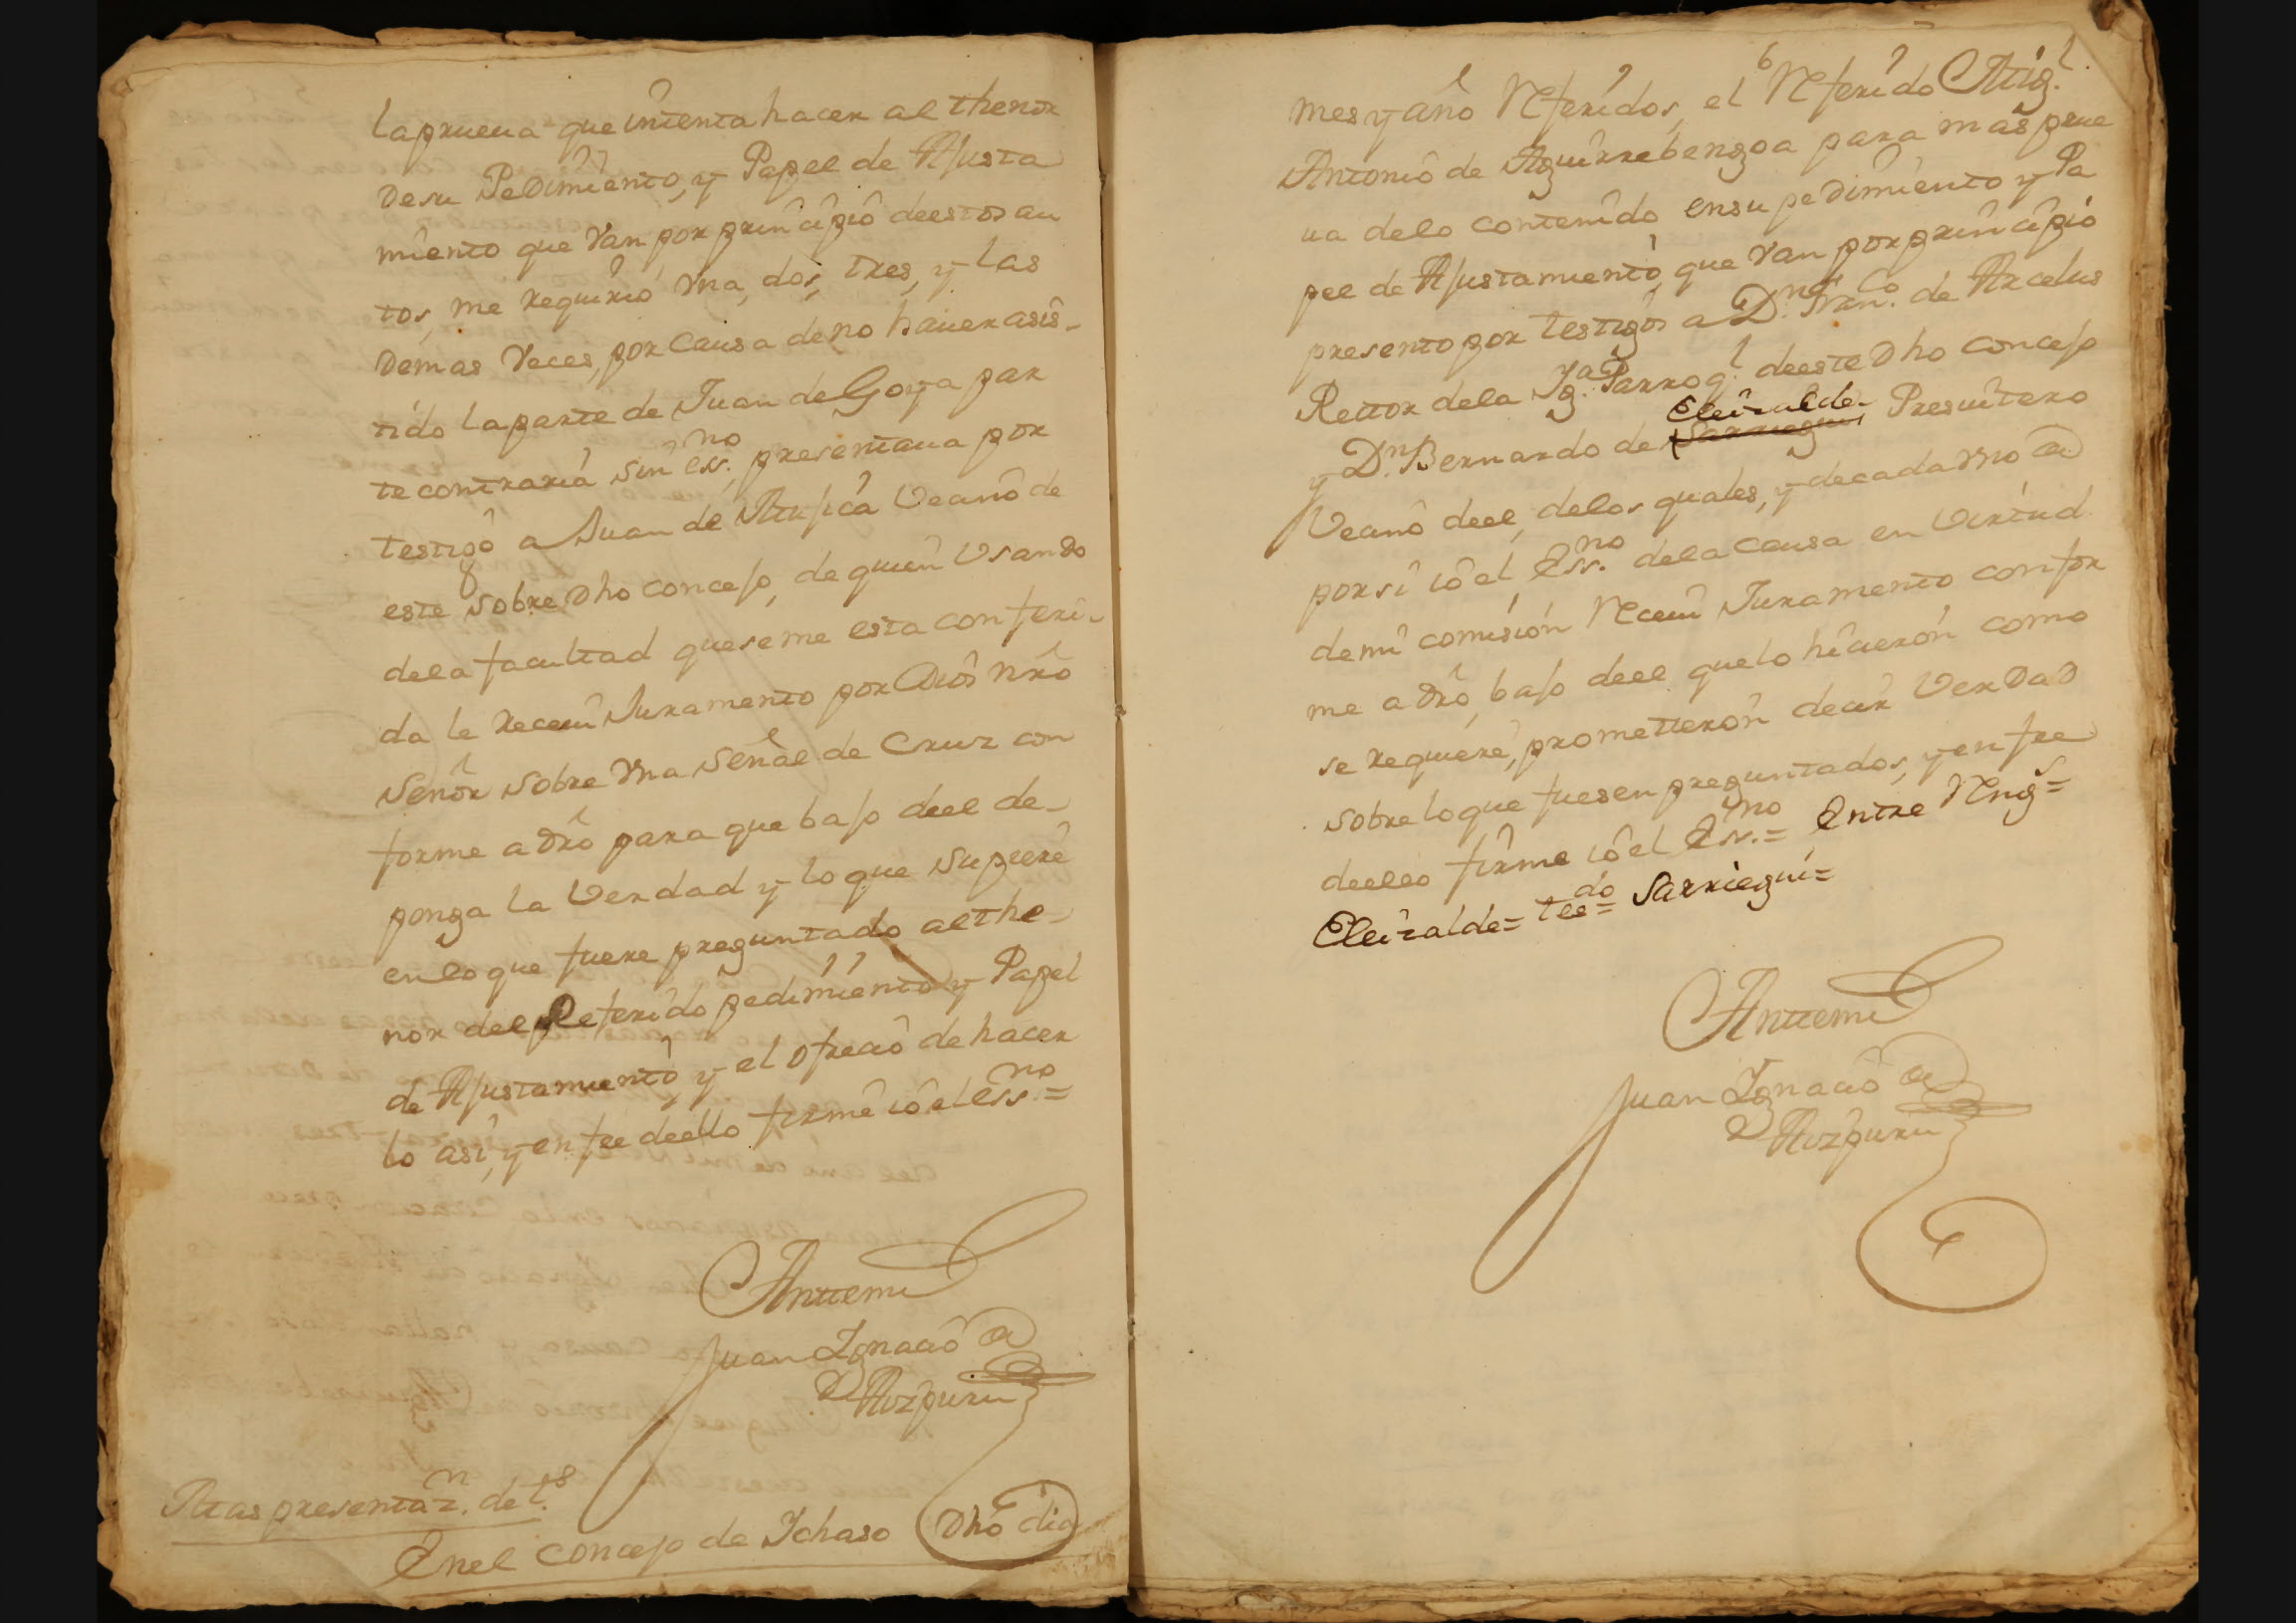 laprueua que intenta hacer al thenor
desu Pedimiento, y Papel de Ajusta
miento que van por principio deestos au
tos, me requirio vna, dos, tres, y las
demas veces, por causa de no hauer asis-
tido laparte de Juan de Goya par
te contraria sin ess.no presentaua por
testigo a Juan de Atusica Vecino de
este sobre dho concejo, de quien Vsando
dela facultad queseme esta conferi-
da le receui Juramento por Dios nrô
Señor sobre vna señal de Cruz con
forme a drô para que bajo deel de-
ponga la Verdad y lo que supiere
enlo que fuere preguntado althe-
nor del Referido pedimiento y Papel
de Ajustamiento, y el ofrecio de hacer
lo asi, y enfee deello firmé io el ess.no =
Antemi
Juan Ignacio de
Aozpuru
Otras presentaz.n de t.s
Enel concejo de Ichaso dho dia
6
mes y año Referidos, el Referido Mig.l
Antonio de Aguirrebengoa para mas prue
ua delo contenido ensu pedimiento y Pa
pel de Ajustamiento, que van por principio
presento por testigos a D.n Fran.co de Arcelus
Rector dela Yg.a Parroq.l deeste dho concejo
Eleizalde
y D.n Bernardo de Sarriegui, Presuitero
Vecino deel, delos quales, y decada vno de
porsi io el Ess.no dela causa en Virtud
demi comision Receui Juramento confor
me a drô, bajo deel quelo hicieron como
se requiere, prometieron decir Verdad
sobreloque fuesen preguntados, y enfee
deello firme io el Ess.no = Entre Rengs =
Eleizalde = tes.do = Sarriegui =
Antemi
Juan Ignacio de
Aozpuru